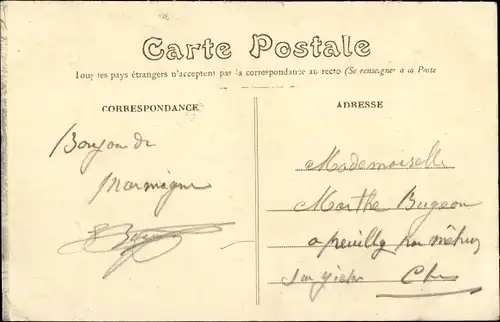 Carte Postale
Tous les pays étrangers n'acceptent pas la correspondance au recto (Se renseigner à la Poste
CORRESPONDANCE
Bonjour de
Marmagne
ADRESSE
Mademoiselle
Marthe Bugeon
a preuilly par Méhun
sur yèvre Cher